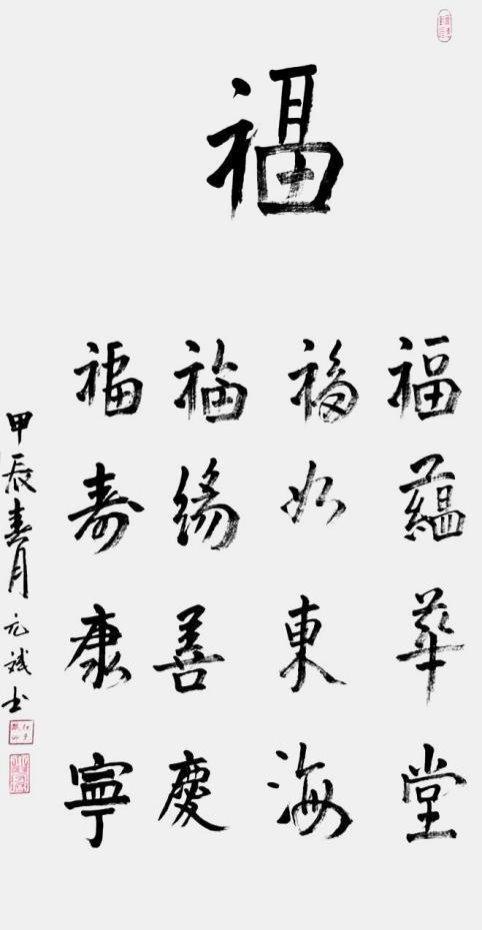 福
福蘊華堂
福如東海
福緣善慶
福寿康寧
甲辰春月元斌书